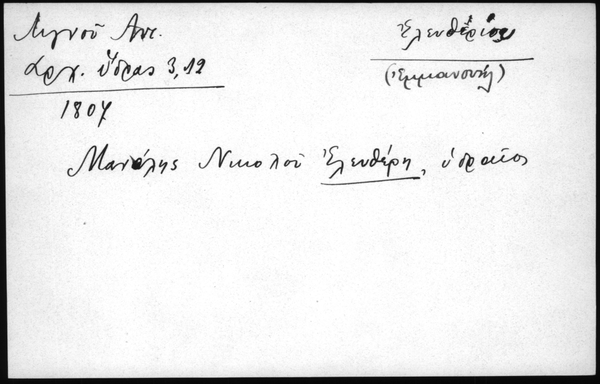 Λιγνοῦ Ἀντ.
Ἀρχ. Ὕδρας 3,12
1807
Ἐλευθέριος
(Ἐμμανουὴλ)
Μανόλης Νικολοῦ Ἐλευθέρη, ὑδραῖος